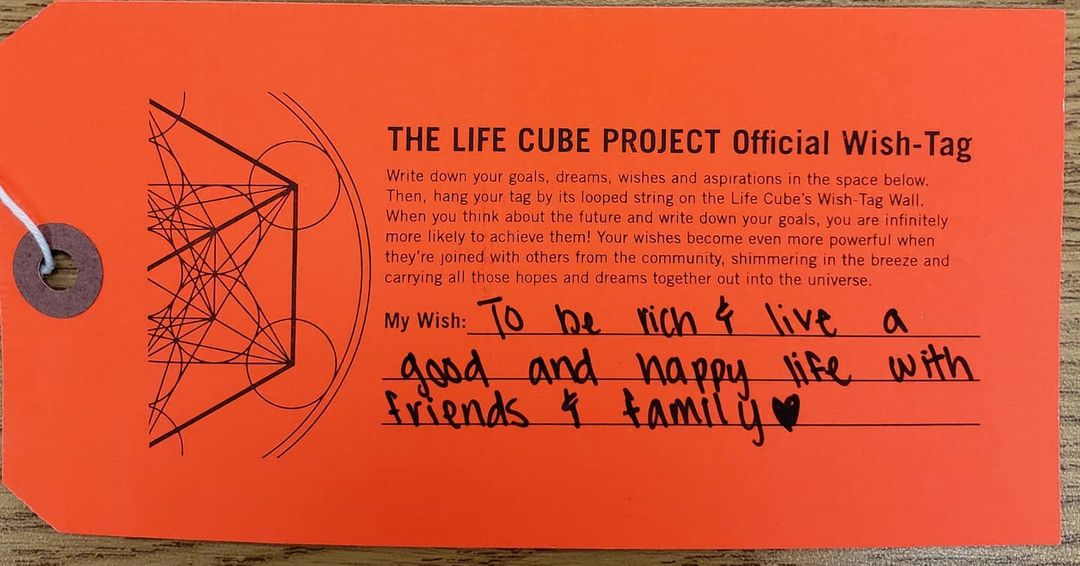 THE LIFE CUBE PROJECT Official Wish-Tag
Write down your goals, dreams, wishes and aspirations in the space below.
Then, hang your tag by its looped string on the Life Cube's Wish-Tag Wall.
When you think about the future and write down your goals, you are infinitely
more likely to achieve them! Your wishes become even more powerful when
they're joined with others from the community, shimmering in the breeze and
carrying all those hopes and dreams together out into the universe.
My Wish: To be rich & live a
good and happy life with
friends & family ♥